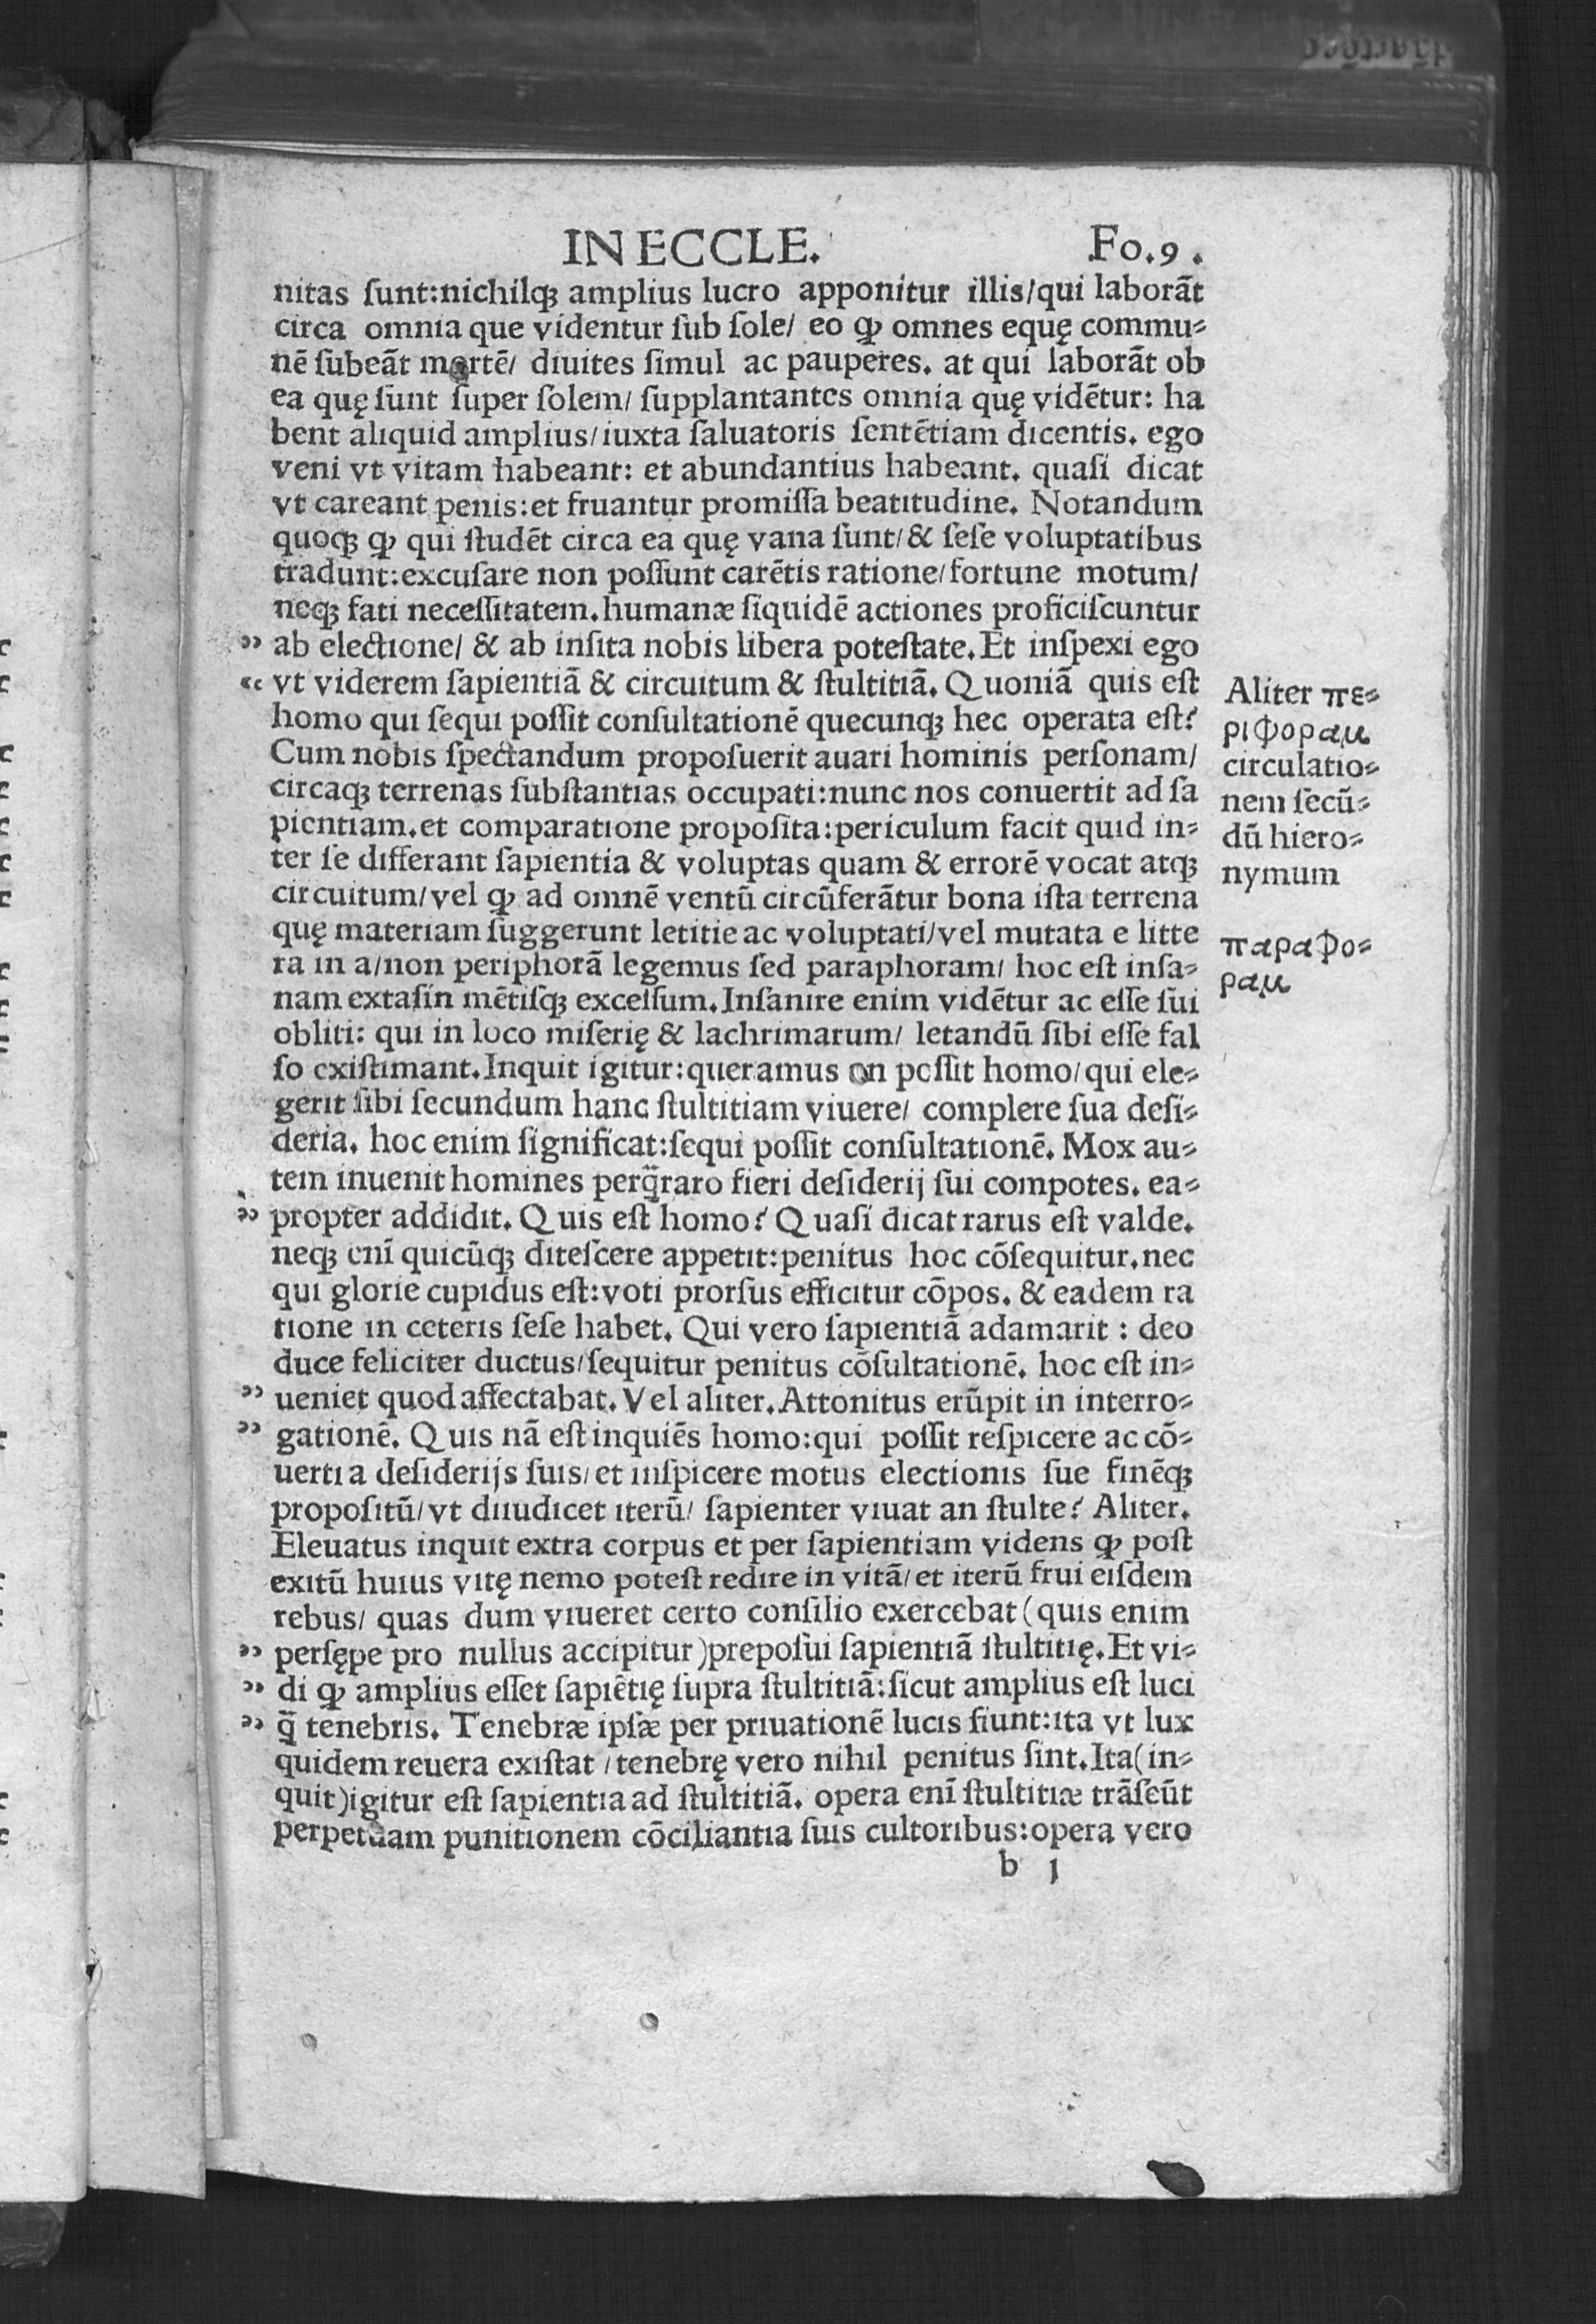 IN ECCLE. Fo.9.
nitas ſunt:nichilqꝫ amplius lucro apponitur illis/qui laborãt
circa omnia que videntur ſub ſole/ eo ꝙ omnes equę commu⸗
nẽ ſubeãt mortẽ/ diuites ſimul ac pauperes. at qui laborãt ob
ea quę ſunt ſuper ſolem/ ſupplantantes omnia quę vidẽtur: ha
bent aliquid amplius/iuxta ſaluatoris ſentẽtiam dicentis. ego
veni vt vitam habeant: et abundantius habeant. quaſi dicat
vt careant penis:et fruantur promiſſa beatitudine. Notandum
quoqꝫ ꝙ qui ſtudẽt circa ea quę vana ſunt/& ſeſe voluptatibus
tradunt:excuſare non poſſunt carẽtis ratione/fortune motum/
neqꝫ fati neceſſitatem.humanæ ſiquidẽ actiones proficiſcuntur
” ab electione/ & ab inſita nobis libera poteſtate.Et inſpexi ego
“ vt viderem ſapientiã & circuitum & ſtultitiã. Quoniã quis eſt
homo qui ſequi poſſit conſultationẽ quecunqꝫ hec operata eſt?
Cum nobis ſpectandum propoſuerit auari hominis perſonam/
circaqꝫ terrenas ſubſtantias occupati:nunc nos conuertit ad ſa
pientiam.et comparatione propoſita:periculum facit quid in⸗
ter ſe differant ſapientia & voluptas quam & errorẽ vocat atqꝫ
circuitum/vel ꝙ ad omnẽ ventũ circũferãtur bona iſta terrena
quę materiam ſuggerunt letitie ac voluptati/vel mutata e litte
ra in a/non periphorã legemus ſed paraphoram/ hoc eſt inſa⸗
nam extaſin mẽtiſqꝫ exceſſum.Inſanire enim vidẽtur ac eſſe ſui
obliti: qui in loco miſerię & lachrimarum/ letandũ ſibi eſſe fal
ſo exiſtimant.Inquit igitur:queramus an poſſit homo/qui ele⸗
gerit ſibi ſecundum hanc ſtultitiam viuere/ complere ſua deſi⸗
deria. hoc enim ſignificat:ſequi poſſit conſultationẽ. Mox au⸗
tem inuenit homines perq̃raro fieri deſiderij ſui compotes. ea⸗
” propter addidit. Quis eſt homo? Quaſi dicat rarus eſt valde.
neqꝫ enĩ quicũqꝫ diteſcere appetit:penitus hoc cõſequitur.nec
qui glorie cupidus eſt:voti prorſus efficitur cõpos. & eadem ra
tione in ceteris ſeſe habet. Qui vero ſapientiã adamarit : deo
duce feliciter ductus/ſequitur penitus cõſultationẽ. hoc eſt in⸗
” ueniet quod affectabat. Vel aliter. Attonitus erũpit in interro⸗
” gationẽ. Quis nã eſt inquiẽs homo:qui poſſit reſpicere ac cõ⸗
uerti a deſiderijs ſuis/et inſpicere motus electionis ſue finẽqꝫ
propoſitũ/vt diiudicet iterũ/ ſapienter viuat an ſtulte? Aliter.
Eleuatus inquit extra corpus et per ſapientiam videns ꝙ poſt
exitũ huius vitę nemo poteſt redire in vitã/et iterũ frui eiſdem
rebus/ quas dum viueret certo conſilio exercebat(quis enim
” perſępe pro nullus accipitur)prepoſui ſapientiã ſtultitię.Et vi⸗
” di ꝙ amplius eſſet ſapiẽtię ſupra ſtultitiã:ſicut amplius eſt luci
” q̃ tenebris. Tenebræ ipſæ per priuationẽ lucis fiunt:ita vt lux
quidem reuera exiſtat /tenebrę vero nihil penitus ſint.Ita(in⸗
quit)igitur eſt ſapientia ad ſtultitiã. opera enĩ ſtultitiæ trãſeũt
perpetuam punitionem cõciliantia ſuis cultoribus:opera vero
b j
Aliter πε⸗
ριφοραμ
circulatio⸗
nem ſecũ⸗
dũ hiero⸗
nymum
παραφο⸗
ραμ